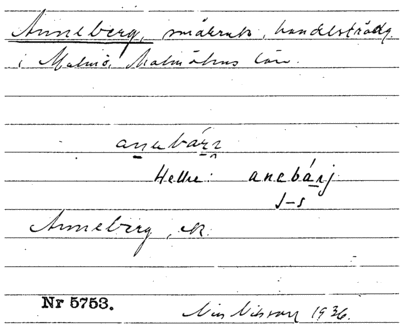 Anneberg, småbruk, handelsträdg.
i Malmö, Malmöhus län.
anebárj
Heller: anebárj
J-s
Anneberg,
Nr 5753.
Nils Nilsson 1936.